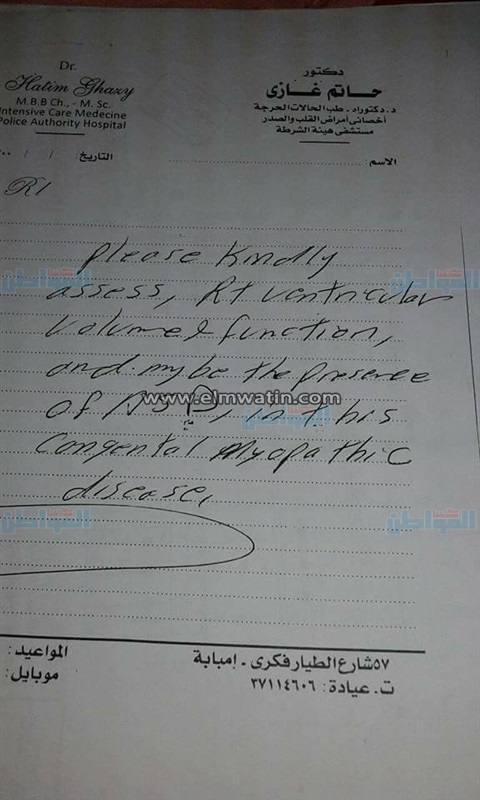 Dr.
Hatim Ghazy
M.B.B Ch., - M. Sc.
Intensive Care Medecine
Police Authority Hospital
دكتور
حاتم غازى
د.دكتوراه - طب الحالات الحرجة
أخصائى أمراض القلب والصدر
مستشفى هيئة الشرطة
الاسم:
التاريخ: / / ٢٠٠
R/
please kindly
assess, Rt ventricular
volume & function,
and mybe the presence
of ASD, in this
Congental Myopathic
disease,
المواطن
www.elmwatin.com
المواطن
المواطن
المواطن
٥٧ شارع الطيار فكرى - إمبابة
ت. عيادة: ٣٧١١٤٦٠٦
المواعيد:
موبايل: